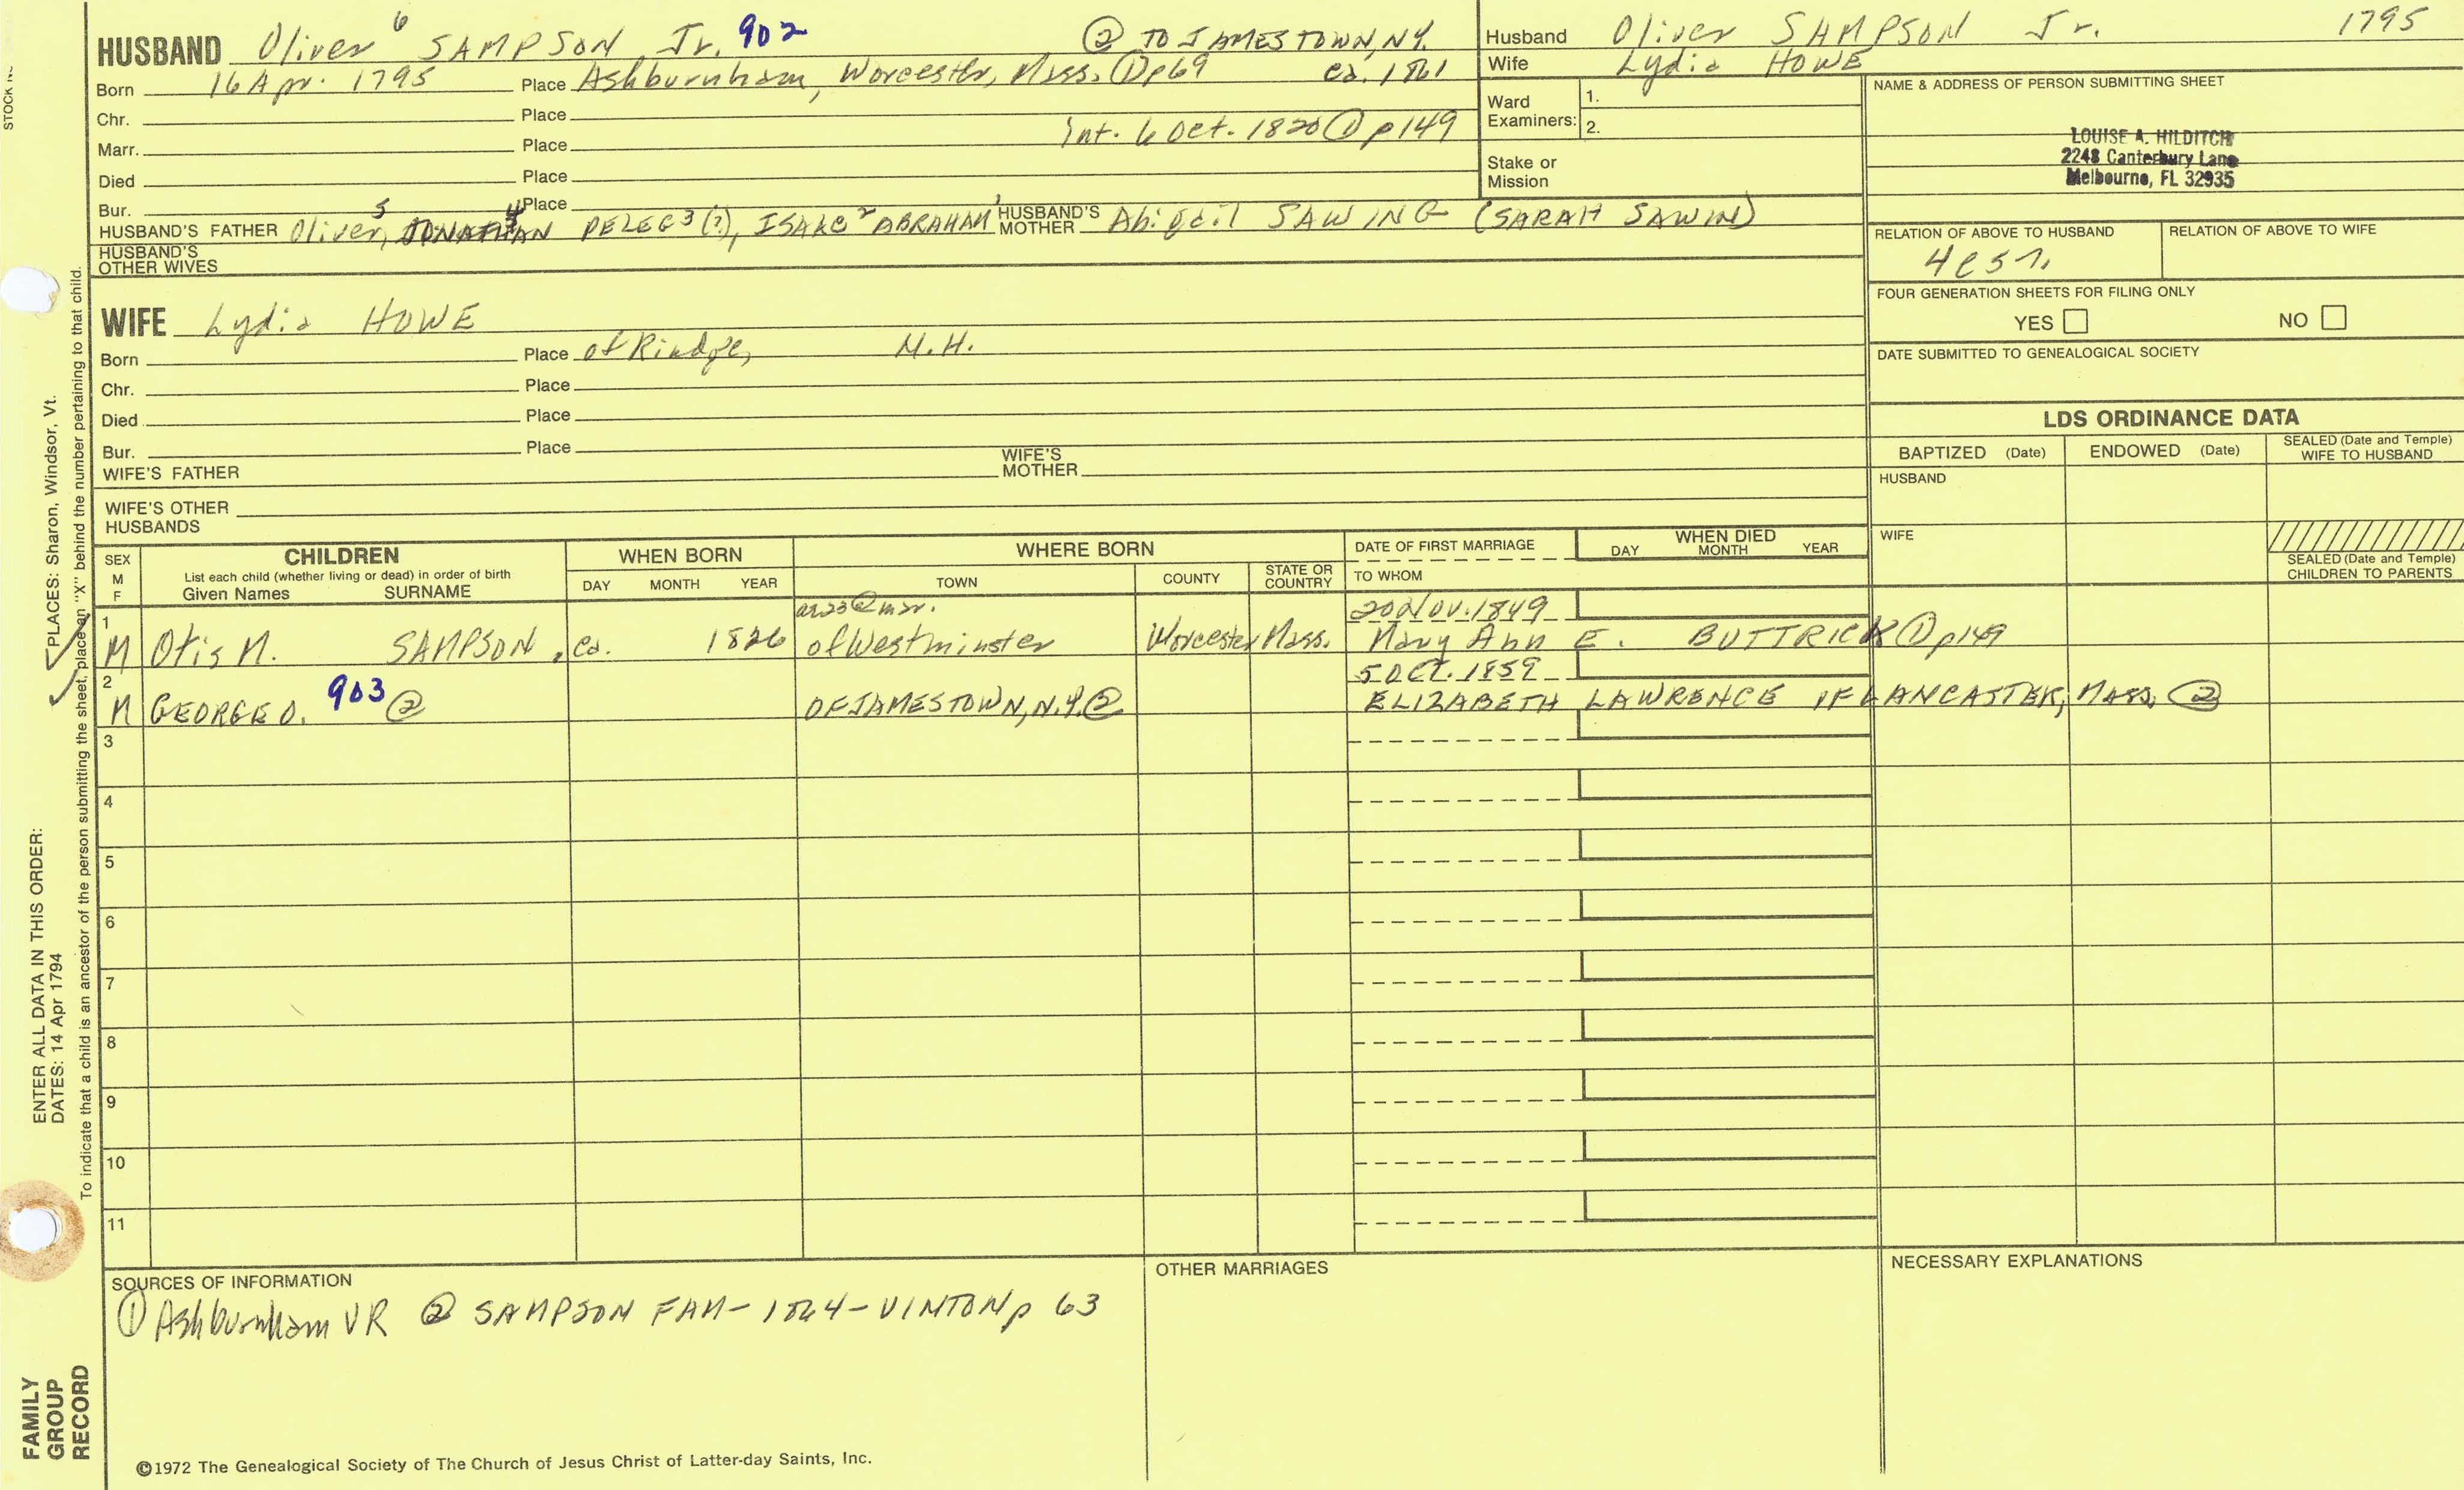 HUSBAND Oliver 6 SAMPSON Jr. 902 ② TO JAMESTOWN, N.Y.
Born 16 Apr. 1795 Place Ashburnham, Worcester, Mass. ① p69 ca. 1861
Chr. Place
Int. 6 Oct. 1820 ① p149
Marr. Place
Died Place
Bur. Place
HUSBAND'S FATHER Oliver 5, JONATHAN 4 PELEG 3 (?), ISAAC 2 ABRAHAM 1 HUSBAND'S MOTHER Abigail SAWING (SARAH SAWIN)
HUSBAND'S OTHER WIVES
Husband Oliver SAMPSON Jr. 1795
Wife Lydia HOWE
Ward Examiners: 1.
2.
Stake or Mission
NAME & ADDRESS OF PERSON SUBMITTING SHEET
LOUISE A. HILDITCH
2248 Canterbury Lane
Melbourne, FL 32935
RELATION OF ABOVE TO HUSBAND RELATION OF ABOVE TO WIFE
FOUR GENERATION SHEETS FOR FILING ONLY
YES NO
DATE SUBMITTED TO GENEALOGICAL SOCIETY
WIFE Lydia HOWE
Born Place of Rindge, N.H.
Chr. Place
Died Place
Bur. Place
WIFE'S FATHER WIFE'S MOTHER
WIFE'S OTHER HUSBANDS
LDS ORDINANCE DATA
BAPTIZED (Date) ENDOWED (Date) SEALED (Date and Temple) WIFE TO HUSBAND
HUSBAND
WIFE
SEALED (Date and Temple) CHILDREN TO PARENTS
SEX M F CHILDREN
List each child (whether living or dead) in order of birth
Given Names SURNAME
WHEN BORN
DAY MONTH YEAR
WHERE BORN
TOWN COUNTY STATE OR COUNTRY
DATE OF FIRST MARRIAGE
TO WHOM
WHEN DIED
DAY MONTH YEAR
20 Nov. 1849
1 M Otis N. SAMPSON, ca. 1826 of Westminster Worcester Mass. Mary Ann E. BUTTRICK ① p149
5 OCT. 1859
2 M GEORGE O. 903 ② OF JAMESTOWN, N.Y. ② ELIZABETH LAWRENCE OF LANCASTER, MASS. ②
3
4
5
6
7
8
9
10
11
SOURCES OF INFORMATION
① Ashburnham VR ② SAMPSON FAM - 1864 - VINTON p 63
OTHER MARRIAGES
NECESSARY EXPLANATIONS
©1972 The Genealogical Society of The Church of Jesus Christ of Latter-day Saints, Inc.
FAMILY GROUP RECORD
ENTER ALL DATA IN THIS ORDER:
DATES: 14 Apr 1794
PLACES: Sharon, Windsor, Vt.
To indicate that a child is an ancestor of the person submitting the sheet, place an "X" behind the number pertaining to that child.